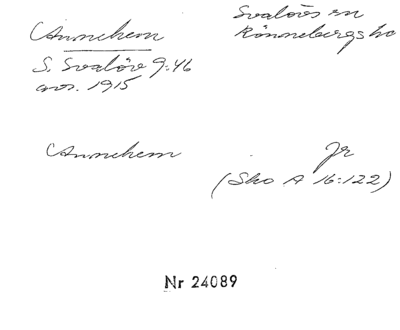 Annehem
Svalövs sn
Rönnebergs hd
S. Svalöv 9:46
avs. 1915
Annehem
Jr
(Sko A 16:122)
Nr 24089